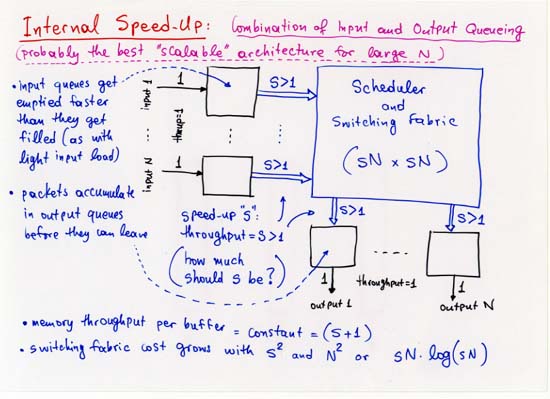 Internal Speed-Up: Combination of Input and Output Queueing
(probably the best "scalable" architecture for large N)
• input queues get
emptied faster
than they get
filled (as with
light input load)
• packets accumulate
in output queues
before they can leave
input 1
1
S>1
thruput=1
... ...
input N
1
S>1
Scheduler
and
Switching Fabric
(sN × sN)
speed-up "s":
throughput = S>1
(how much
should s be?)
S>1
S>1
....
throughput=1
1
1
output 1
output N
• memory throughput per buffer = constant = (s+1)
• switching fabric cost grows with s² and N² or sN·log(sN)